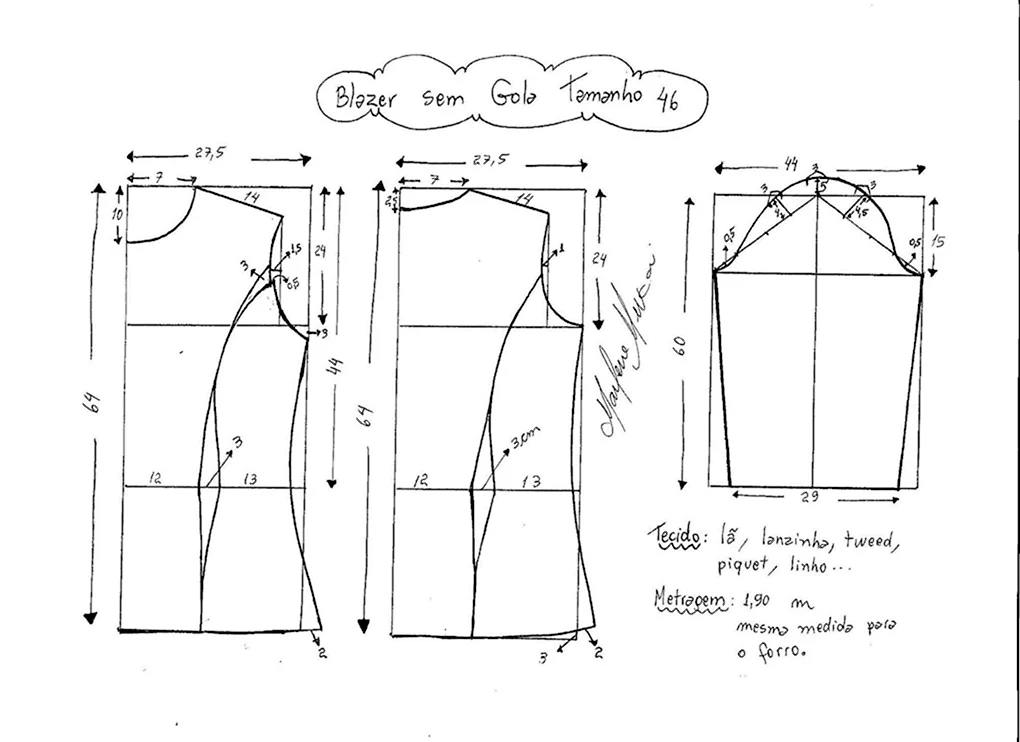 Blazer sem Gola Tamanho 46
27,5
7
10
14
1,5
3
0,5
24
3
44
64
3
12
13
2
27,5
7
2,5
14
1
24
64
3cm
12
13
3
2
Marlene Mukai
44
3
3
5
3
4,5
0,5
0,5
15
60
29
Tecido: lã, lanzinha, tweed,
piquet, linho...
Metragem: 1,90 m
mesma medida para
o forro.